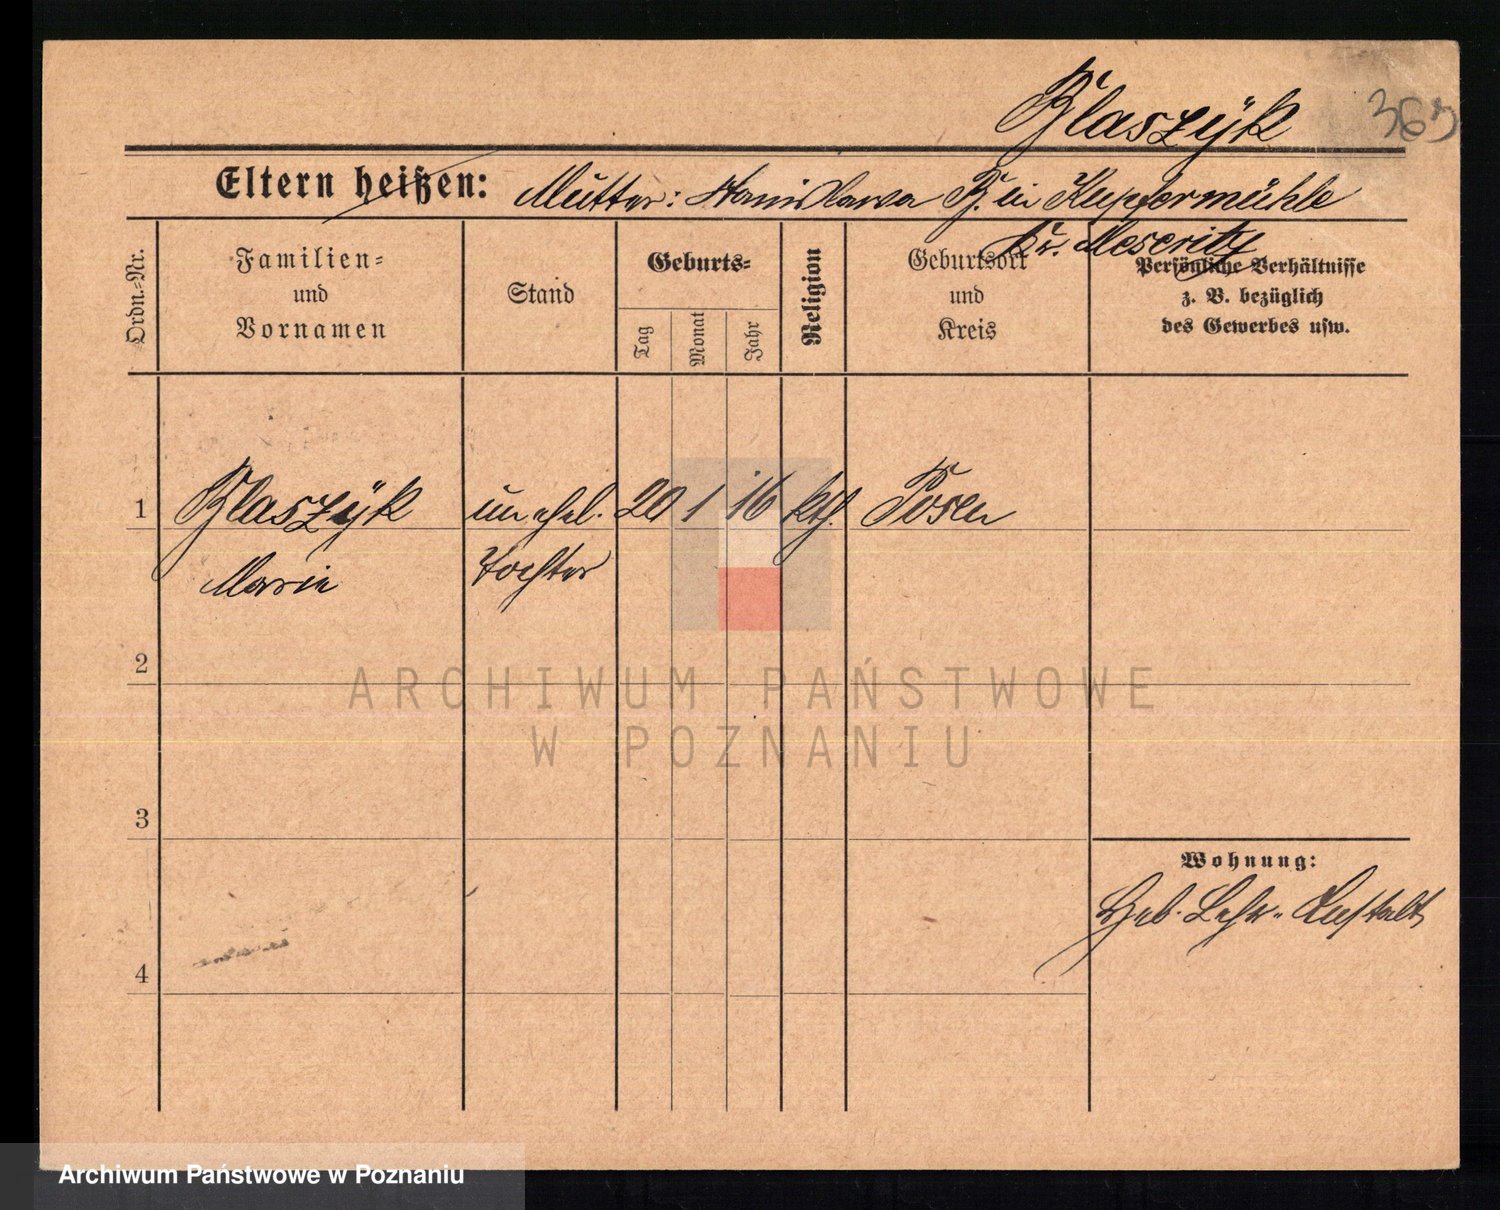 Blaszÿk 363
Eltern heißen: Mutter: Stanislawa B. in Kupfermühle
Kr. Meseritz
Ordn.-Nr.
Familien-
und
Vornamen
Stand
Geburts-
Tag
Monat
Jahr
Religion
Geburtsort
und
Kreis
Persönliche Verhältnisse
z. B. bezüglich
des Gewerbes usw.
1 Blaszÿk unehel. 20 1 16 kth. Posen
Marie Tochter
2
ARCHIWUM PAŃSTWOWE
W POZNANIU
3
Wohnung:
Heb. Lehr-Anstalt
4
Archiwum Państwowe w Poznaniu